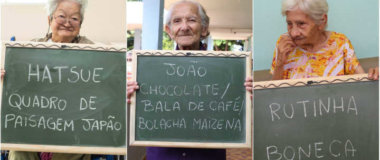 HATSUE
QUADRO DE
PAISAGEM JAPÃO
JOÃO
CHOCOLATE/
BALA DE CAFÉ/
BOLACHA MAIZENA
RUTINHA
BONECA